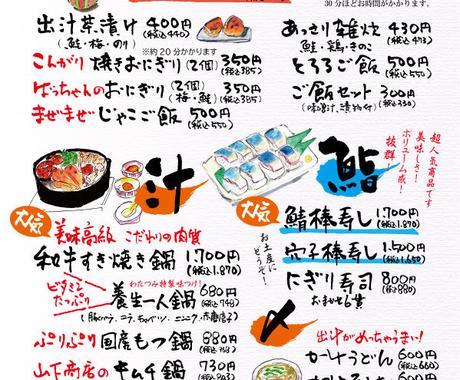 30分ほどお時間がかかります。
出汁茶漬け 400円
(鮭・梅・のり) (税込440)
※約20分かかります
こんがり焼きおにぎり(2個) 350円
(税込385)
ばっちゃんのおにぎり(2個) 350円
(梅・鮭) (税込385)
まぜまぜじゃこご飯 500円
(税込550)
あっさり雑炊 430円
鮭・鶏・きのこ (税込473)
とろろご飯 500円
(税込550)
ご飯セット 300円
(味噌汁、漬物付) (税込330)
汁
大人気
美味高級 こだわりの肉質
和牛すき焼き鍋 1,700円
(税込1,870)
ビタミンたっぷり
わたつみ特製味つけ!
養生一人鍋 680円
(税込748)
(豚バラ、ニラ、キャベツ、ニンニク、赤唐辛子)
ぷりぷり国産もつ鍋 880円
山下商店の
キムチ鍋 730円
(税込803)
鮨
超人気商品です
美味しさ!
ボリューム感!
抜群
大人気
お土産に
どうぞ!
鯖棒寿し 1,700円
(税込1,870)
穴子棒寿し 1,500円
にぎり寿司 800円
おまかせ6貫 (税込880)
〆
出汁がめっちゃうまい!
カレーうどん 600円
(税込660)
660円